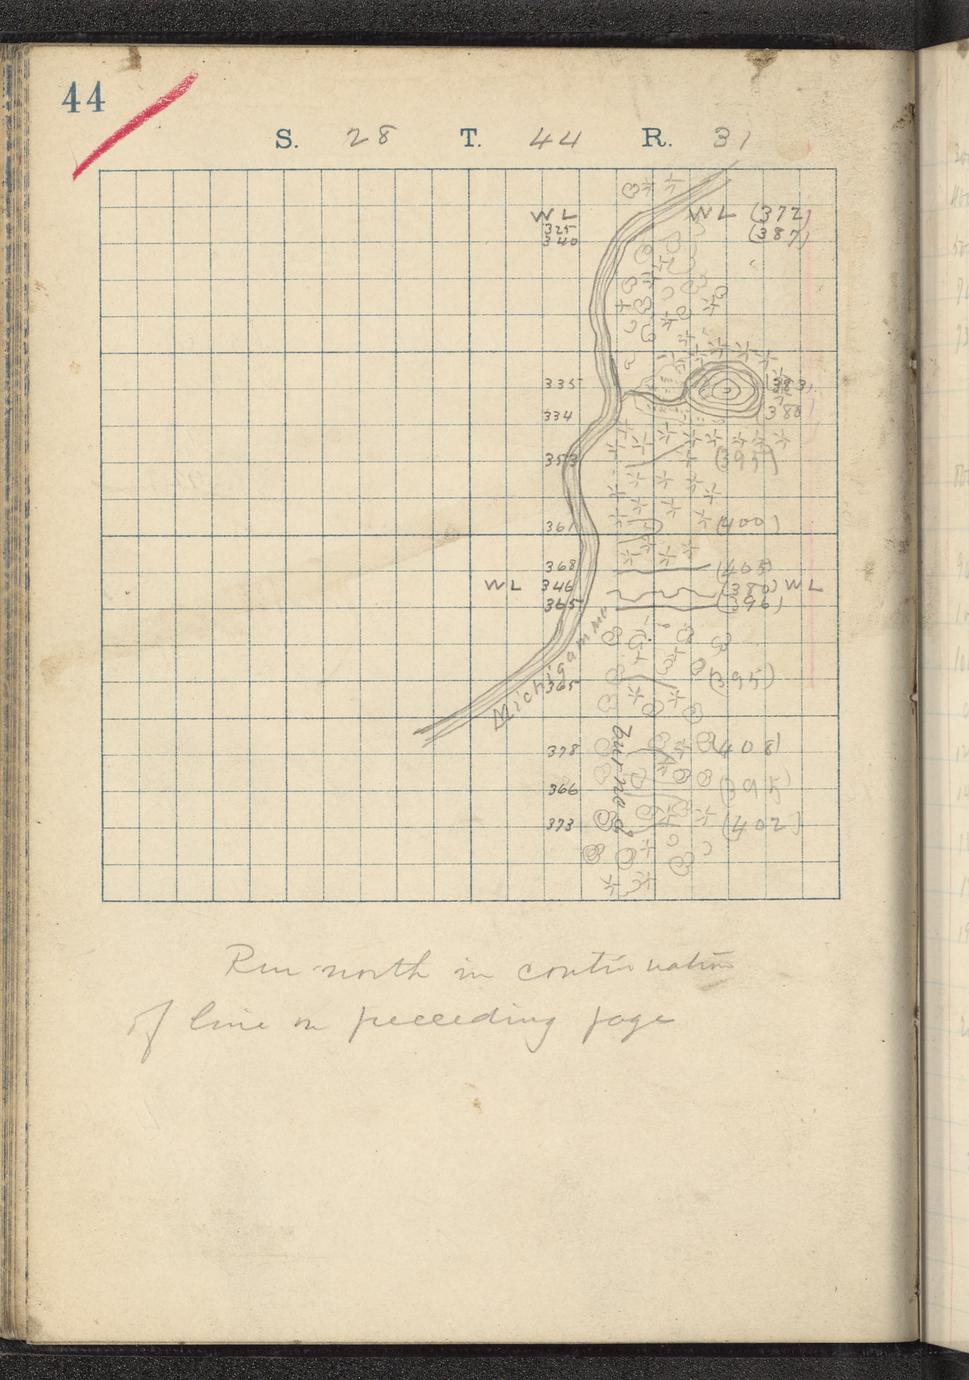 44
S. 28 T. 44 R. 31
WL WL (372)
325 (387)
340
335 (383)
334 (380)
353 (395)
361 (400)
368 (405)
WL 346 (380) WL
365 (396)
Michigamme
365 (395)
burned
378 (408)
366 (395)
373 (402)
Run north in continuation
of line on preceeding page